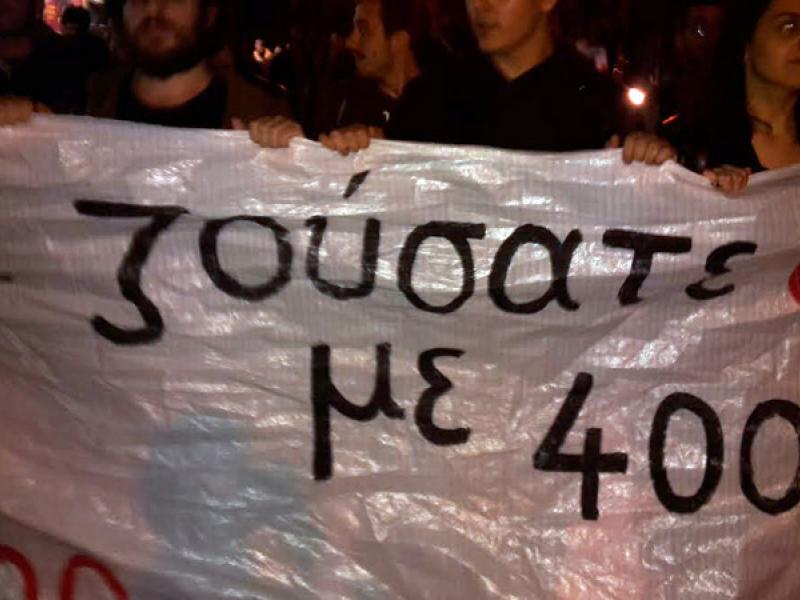 ζούσατε
με 400